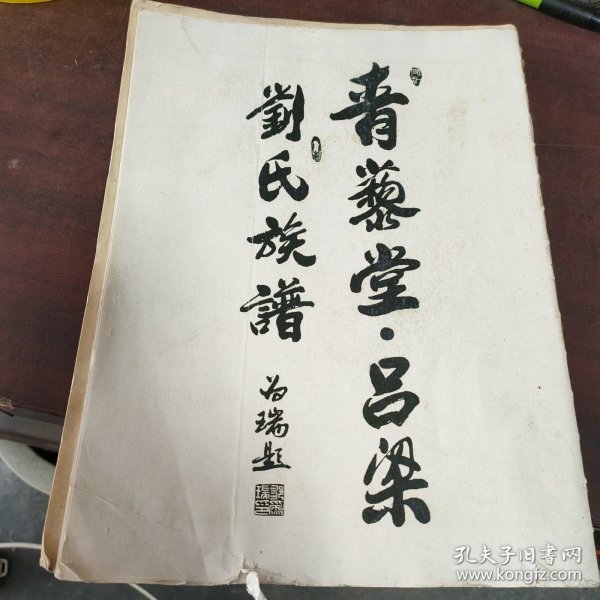 青藜堂·吕梁
劉氏族譜
为瑞题
孔夫子旧书网
www.kongfz.com